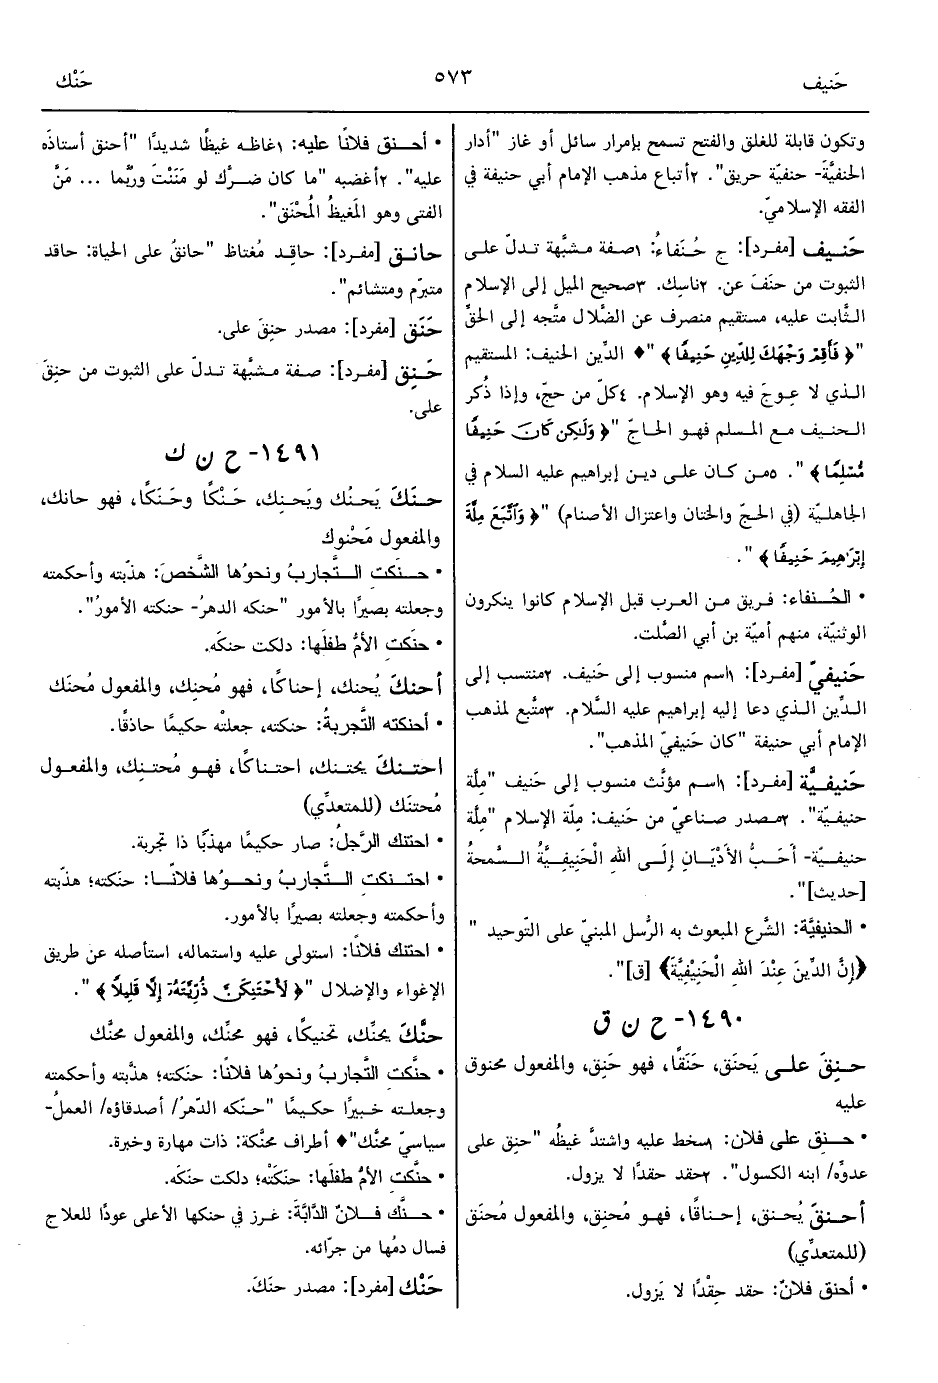 حَنيف
٥٧٣
حَنْك
وتكون قابلة للغلق والفتح تسمح بإمرار سائل أو غاز "أدار
الحنفيَّة- حنفيّة حريق". ٢أتباع مذهب الإمام أبي حنيفة في
الفقه الإسلاميّ.
حَنيف [مفرد]: ج حُنَفاءُ: ١صفة مشبَّهة تدلّ على
الثبوت من حنَفَ عن. ٢ناسِك. ٣صحيح الميل إلى الإسلام
الثَّابت عليه، مستقيم منصرف عن الضَّلال متَّجه إلى الحقِّ
"﴿فَأَقِمْ وَجْهَكَ لِلدِّينِ حَنِيفًا﴾"♦ الدِّين الحنيف: المستقيم
الذي لا عِوجَ فيه وهو الإسلام. ٤كلّ من حجّ، وإذا ذُكر
الحنيف مع المسلم فهو الحاجّ "﴿وَلَكِن كَانَ حَنِيفًا
مُّسْلِمًا﴾". ٥من كان على دين إبراهيم عليه السلام في
الجاهليّة (في الحجّ والختان واعتزال الأصنام) "﴿وَاتَّبَعَ مِلَّةَ
إِبْرَاهِيمَ حَنِيفًا﴾".
• الحُنفاء: فريق من العرب قبل الإسلام كانوا ينكرون
الوثنيّة، منهم أميّة بن أبي الصَّلت.
حَنيفيّ [مفرد]: ١اسم منسوب إلى حَنيف. ٢منتسب إلى
الدِّين الذي دعا إليه إبراهيم عليه السَّلام. ٣متَّبع لمذهب
الإمام أبي حنيفة "كان حَنيفيّ المذهب".
حَنيفيَّة [مفرد]: ١اسم مؤنَّث منسوب إلى حَنيف "مِلَّة
حنيفيّة". ٢مصدر صناعيّ من حَنيف: مِلّة الإسلام "مِلَّة
حنيفيّة- أَحَبُّ الأَدْيَانِ إِلَى اللهِ الْحَنِيفِيَّةُ السَّمحةُ
[حديث]".
• الحنيفيَّة: الشَّرع المبعوث به الرُّسل المبنيّ على التّوحيد "
﴿إِنَّ الدِّينَ عِنْدَ اللهِ الْحَنِيفِيَّةَ﴾ [ق]".
١٤٩٠- ح ن ق
حنِقَ على يَحنَق، حَنَقًا، فهو حَنِق، والمفعول محنوق
عليه
• حنِق على فلان: ١سخط عليه واشتدَّ غيظُه "حنِق على
عدوِّه/ ابنه الكسول". ٢حقد حقدًا لا يزول.
أحنقَ يُحنق، إحناقًا، فهو مُحنِق، والمفعول مُحنَق
(للمتعدِّي)
• أحنق فلانٌ: حقد حِقْدًا لا يَزول.
• أحنق فلانًا عليه: ١غاظه غيظًا شديدًا "أحنق أستاذَه
عليه". ٢أغضبه "ما كان ضرُّك لو مَنَنْتَ وربُّما ... مَنَّ
الفتى وهو المَغيظُ المُحْنَق".
حانق [مفرد]: حاقِد مُغتاظ "حانقٌ على الحياة: حاقد
متبرّم ومتشائم".
حَنَق [مفرد]: مصدر حنِقَ على.
حَنِق [مفرد]: صفة مشبَّهة تدلّ على الثبوت من حنِقَ
على.
١٤٩١- ح ن ك
حنَكَ يَحنُك ويَحنِك، حَنْكًا وحَنَكًا، فهو حانك،
والمفعول مَحْنوك
• حنَكت التَّجاربُ ونحوُها الشَّخصَ: هذّبته وأحكمته
وجعلته بصيرًا بالأمور "حنكه الدهرُ- حنكته الأمورُ".
• حنَكت الأمُّ طفلَها: دلكت حنكَه.
أحنكَ يُحنك، إحناكًا، فهو مُحنِك، والمفعول مُحنَك
• أحنكته التَّجربةُ: حنكته، جعلتْه حكيمًا حاذقًا.
احتنكَ يحتنك، احتناكًا، فهو مُحتنِك، والمفعول
مُحتنَك (للمتعدِّي)
• احتنك الرَّجلُ: صار حكيمًا مهذبًا ذا تجربة.
• احتنكت التَّجاربُ ونحوُها فلانًا: حنَكته؛ هذّبته
وأحكمته وجعلته بصيرًا بالأمور.
• احتنك فلانًا: استولى عليه واستماله، استأصله عن طريق
الإغواء والإضلال "﴿لأَحْتَنِكَنَّ ذُرِّيَّتَهُ إِلَّا قَلِيلًا﴾".
حنَّكَ يحنِّك، تحنيكًا، فهو محنِّك، والمفعول محنَّك
• حنَّكت التَّجاربُ ونحوُها فلانًا: حنَكته؛ هذّبته وأحكمته
وجعلته خبيرًا حكيمًا "حنّكه الدّهرُ/ أصدقاؤه/ العملُ-
سياسيّ محنَّك"♦ أطراف محنَّكة: ذات مهارة وخبرة.
• حنَّكت الأمُّ طفلَها: حنَكَتْه؛ دلكت حنَكَه.
• حنَّك فلانٌ الدَّابَّةَ: غرز في حنكها الأعلى عودًا للعلاج
فسال دمُها من جرّائه.
حَنْك [مفرد]: مصدر حنَكَ.